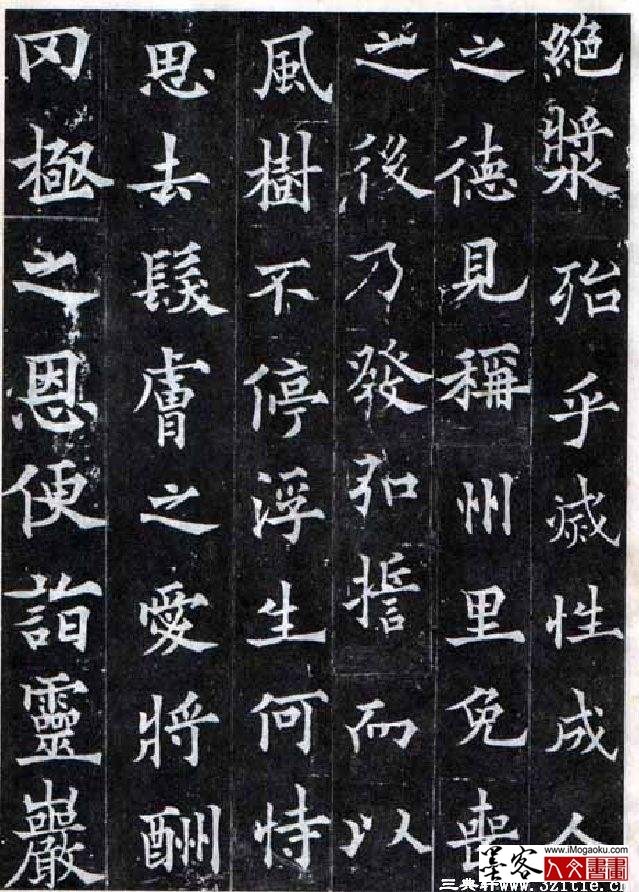 絶漿殆乎滅性成人
之德見稱州里免喪
之後乃發弘誓而以
風樹不停浮生何恃
思去髮膚之愛將酬
罔極之恩便詣靈巖
墨客
www.iMogaoku.com
人文書畫